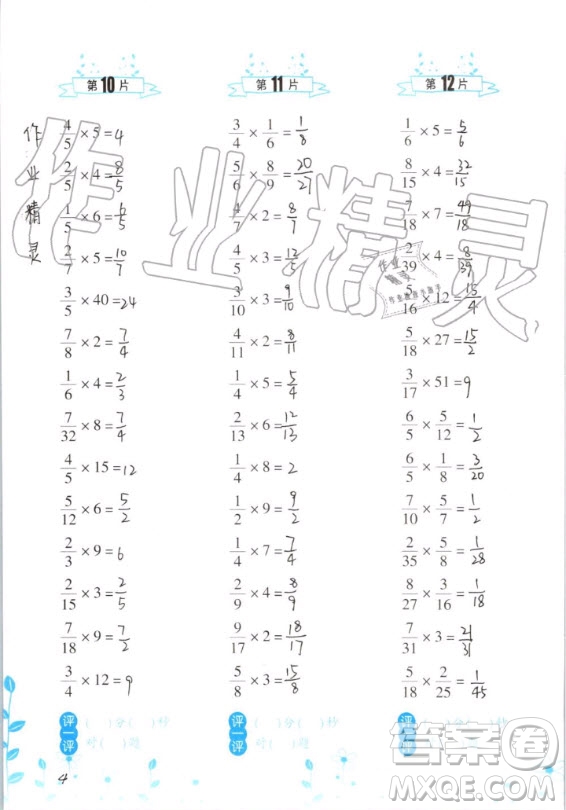 第10片 第11片 第12片
4/5 × 5 = 4
2/5 × 4 = 8/5
1/5 × 6 = 6/5
2/7 × 5 = 10/7
3/5 × 40 = 24
7/8 × 2 = 7/4
1/6 × 4 = 2/3
7/32 × 8 = 7/4
4/5 × 15 = 12
5/12 × 6 = 5/2
2/3 × 9 = 6
2/15 × 3 = 2/5
7/18 × 9 = 7/2
3/4 × 12 = 9
3/4 × 1/6 = 1/8
5/6 × 8/9 = 20/27
4/7 × 2 = 8/7
4/5 × 3 = 12/5
3/10 × 3 = 9/10
4/11 × 2 = 8/11
1/4 × 5 = 5/4
2/13 × 6 = 12/13
1/4 × 8 = 2
1/2 × 9 = 9/2
1/4 × 7 = 7/4
2/9 × 4 = 8/9
9/17 × 2 = 18/17
5/8 × 3 = 15/8
1/6 × 5 = 5/6
8/15 × 4 = 32/15
7/18 × 7 = 49/18
2/39 × 4 = 8/39
5/16 × 12 = 15/4
5/18 × 27 = 15/2
3/17 × 51 = 9
6/5 × 5/12 = 1/2
6/5 × 1/8 = 3/20
7/10 × 5/7 = 1/2
2/35 × 5/8 = 1/28
8/27 × 3/16 = 1/18
7/31 × 3 = 21/31
5/18 × 2/25 = 1/45
作业精灵
作业精灵
作业精灵
评一评 ( )分( )秒 对( )题
评一评 ( )分( )秒 对( )题
评一评
4
答案圈
MXQE.COM